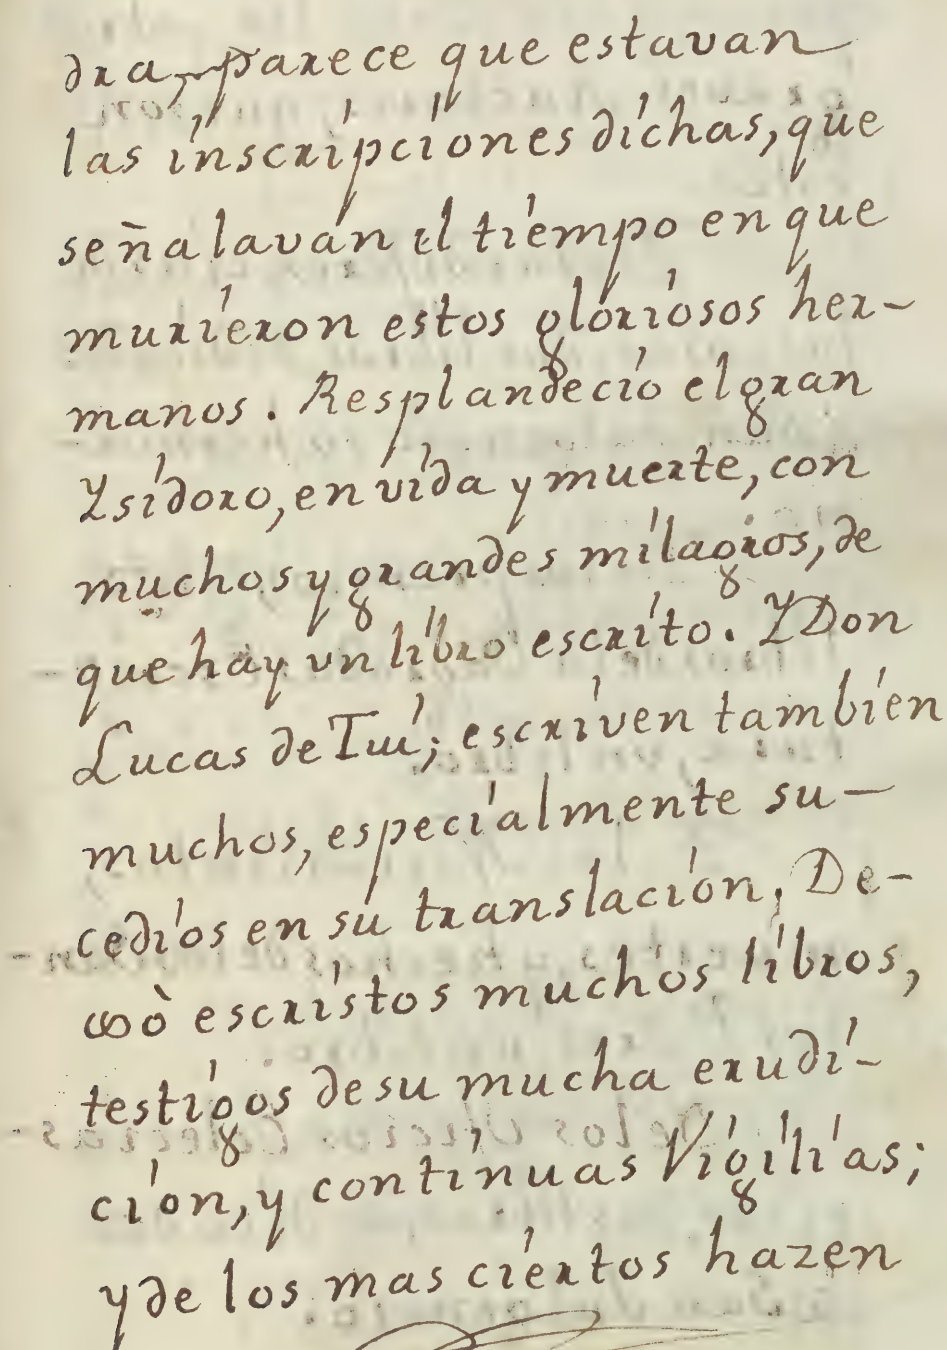 dra, parece que estavan
las inscripciones dichas, que
señalavan el tiempo en que
murieron estos gloriosos her-
manos. Resplandeció el gran
Ysidoro, en vida y muerte, con
muchos y grandes milagros, de
que hay vn libro escrito. Y Don
Lucas de Tui; escriven tambien
muchos, especialmente su-
cedios en su translacion, De-
xò escristos muchos libros,
testigos de su mucha erudi-
cion, y continuas Vigilias;
y de los mas ciertos hazen